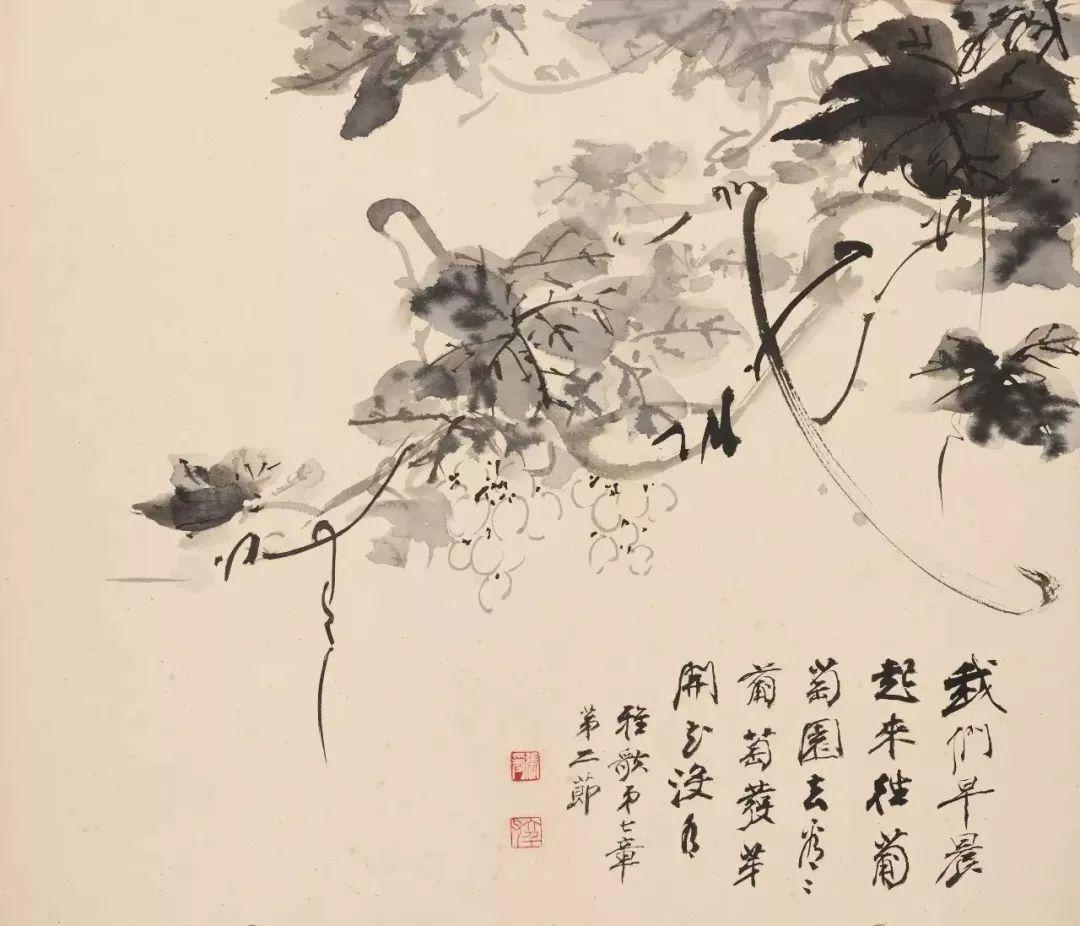 我們早晨
起來往葡
萄園去看〻
葡萄發芽
開花沒有
雅歌第七章
第二節